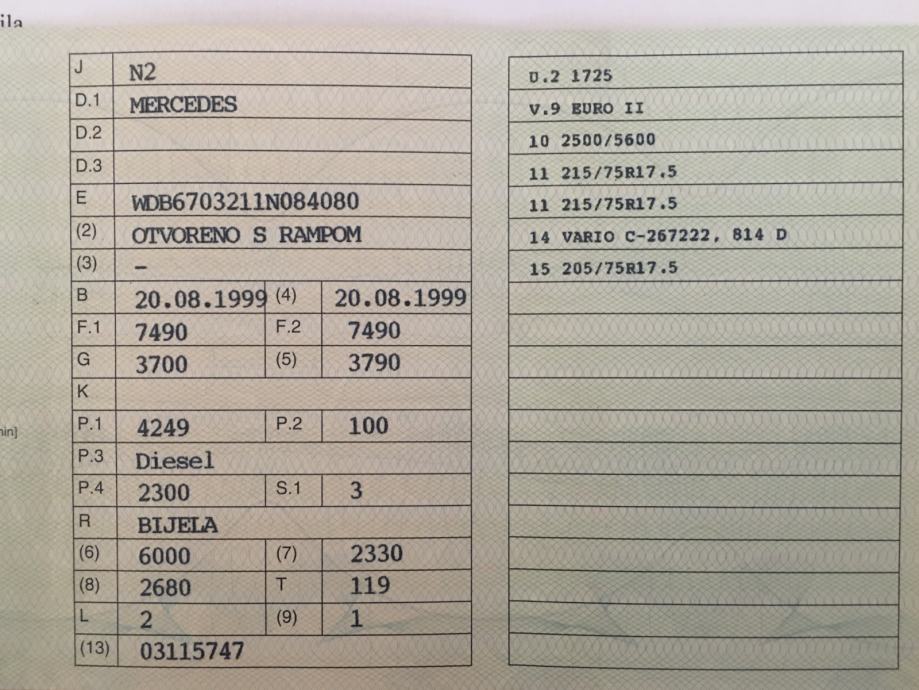 ila
J N2
D.1 MERCEDES
D.2
D.3
E WDB6703211N084080
(2) OTVORENO S RAMPOM
(3) –
B 20.08.1999 (4) 20.08.1999
F.1 7490 F.2 7490
G 3700 (5) 3790
K
P.1 4249 P.2 100
P.3 Diesel
P.4 2300 S.1 3
R BIJELA
(6) 6000 (7) 2330
(8) 2680 T 119
L 2 (9) 1
(13) 03115747
min]
U.2 1725
V.9 EURO II
10 2500/5600
11 215/75R17.5
11 215/75R17.5
14 VARIO C-267222, 814 D
15 205/75R17.5